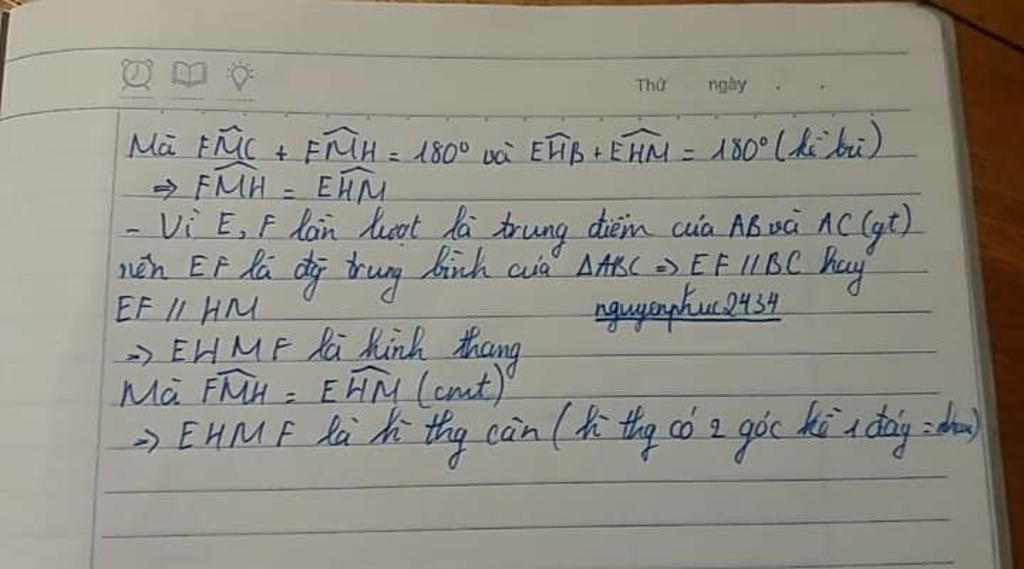 Thứ ngày . .
Mà FM̂C + FM̂H = 180° và EĤB + EĤM = 180° (kề bù)
⇒ FM̂H = EĤM
- Vì E, F lần lượt là trung điểm của AB và AC (gt)
nên EF là đg trung bình của ΔABC ⇒ EF // BC hay
EF // HM
nguyenphuc2434
⇒ EHMF là hình thang
Mà FM̂H = EĤM (cmt)
⇒ EHMF là h thg cân (h thg có 2 góc kề 1 đáy = nhau)